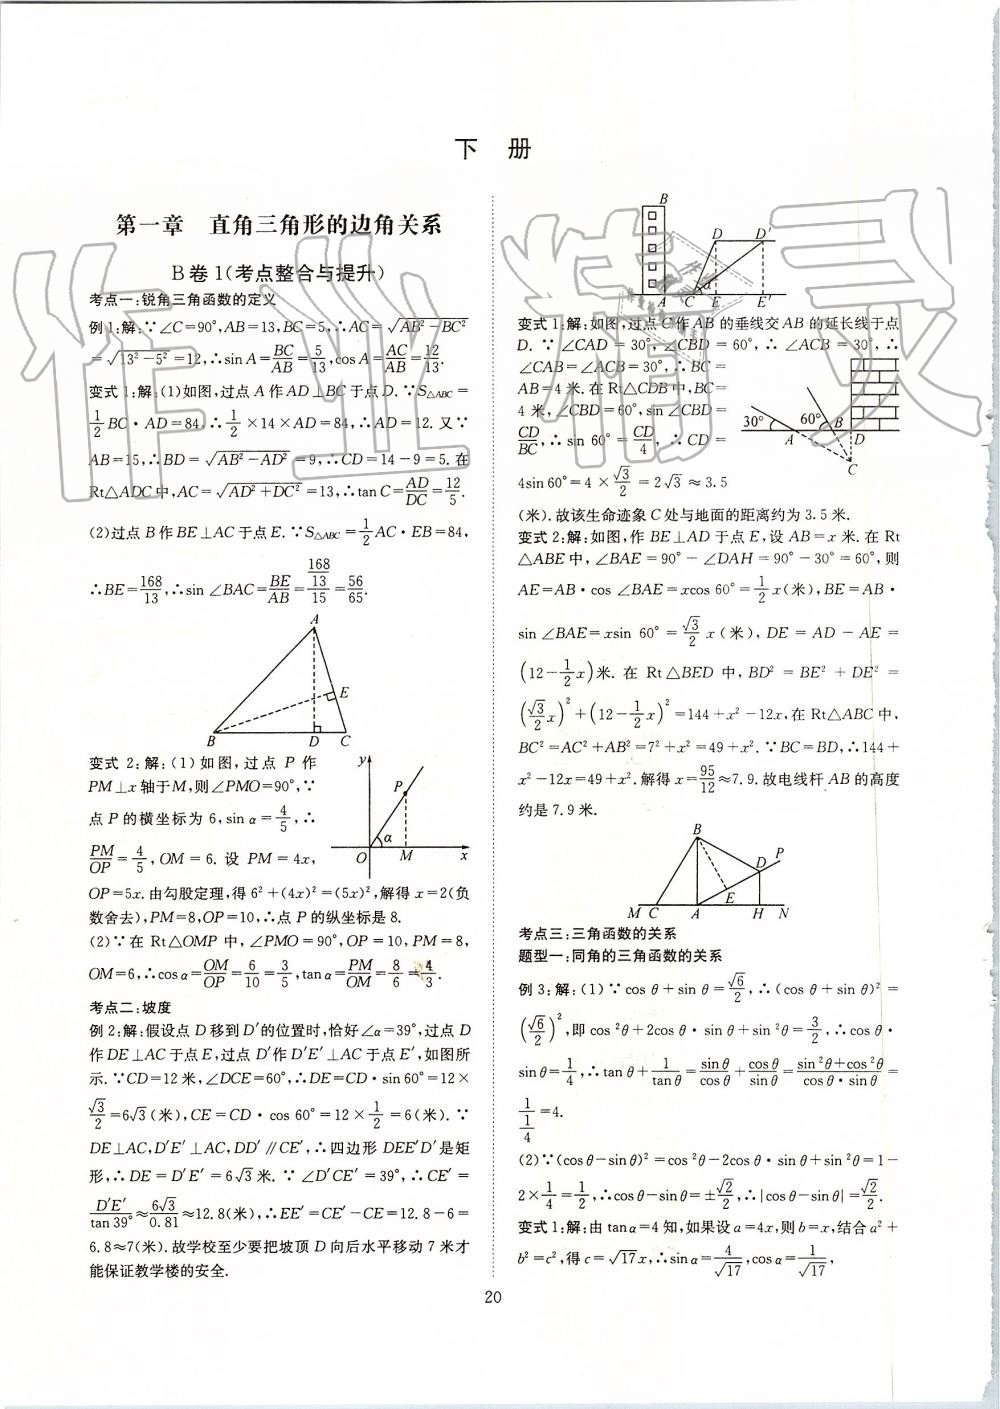 下 册
第一章 直角三角形的边角关系
B卷1(考点整合与提升)
考点一:锐角三角函数的定义
例1:解:∵∠C=90°,AB=13,BC=5,∴AC=√(AB²-BC²)
=√(13²-5²)=12,∴sin A=BC/AB=5/13,cos A=AC/AB=12/13.
变式1:解:(1)如图,过点A作AD⊥BC于点D.∵S△ABC=
1/2 BC·AD=84,∴1/2×14×AD=84,∴AD=12.又∵
AB=15,∴BD=√(AB²-AD²)=9,∴CD=14-9=5.在
Rt△ADC中,AC=√(AD²+DC²)=13,∴tan C=AD/DC=12/5.
(2)过点B作BE⊥AC于点E.∵S△ABC=1/2 AC·EB=84,
∴BE=168/13,∴sin∠BAC=BE/AB=(168/13)/15=56/65.
A
E
B D C
变式2:解:(1)如图,过点P作
PM⊥x轴于M,则∠PMO=90°,∵
点P的横坐标为6,sin α=4/5,∴
PM/OP=4/5,OM=6.设PM=4x,
y
P
α
O M x
OP=5x.由勾股定理,得6²+(4x)²=(5x)²,解得x=2(负
数舍去),PM=8,OP=10,∴点P的纵坐标是8.
(2)∵在Rt△OMP中,∠PMO=90°,OP=10,PM=8,
OM=6,∴cos α=OM/OP=6/10=3/5,tan α=PM/OM=8/6=4/3.
考点二:坡度
例2:解:假设点D移到D′的位置时,恰好∠α=39°,过点D
作DE⊥AC于点E,过点D′作D′E′⊥AC于点E′,如图所
示.∵CD=12米,∠DCE=60°,∴DE=CD·sin 60°=12×
√3/2=6√3(米),CE=CD·cos 60°=12×1/2=6(米).∵
DE⊥AC,D′E′⊥AC,DD′∥CE′,∴四边形DEE′D′是矩
形,∴DE=D′E′=6√3米.∵∠D′CE′=39°,∴CE′=
D′E′/tan 39°≈6√3/0.81≈12.8(米),∴EE′=CE′-CE=12.8-6=
6.8≈7(米).故学校至少要把坡顶D向后水平移动7米才
能保证教学楼的安全.
B
D D′
α
A C E E′
变式1:解:如图,过点C作AB的垂线交AB的延长线于点
D.∵∠CAD=30°,∠CBD=60°,∴∠ACB=30°,∴
∠CAB=∠ACB=30°,∴BC=
AB=4米.在Rt△CDB中,BC=
4米,∠CBD=60°,sin∠CBD=
CD/BC,∴sin 60°=CD/4,∴CD=
4sin 60°=4×√3/2=2√3≈3.5
30° 60°
A B D
C
(米).故该生命迹象C处与地面的距离约为3.5米.
变式2:解:如图,作BE⊥AD于点E,设AB=x米.在Rt
△ABE中,∠BAE=90°-∠DAH=90°-30°=60°,则
AE=AB·cos∠BAE=xcos 60°=1/2 x(米),BE=AB·
sin∠BAE=xsin 60°=√3/2 x(米),DE=AD-AE=
(12-1/2 x)米.在Rt△BED中,BD²=BE²+DE²=
(√3/2 x)²+(12-1/2 x)²=144+x²-12x,在Rt△ABC中,
BC²=AC²+AB²=7²+x²=49+x².∵BC=BD,∴144+
x²-12x=49+x².解得x=95/12≈7.9.故电线杆AB的高度
约是7.9米.
B
D P
E
M C A H N
考点三:三角函数的关系
题型一:同角的三角函数的关系
例3:解:(1)∵cos θ+sin θ=√6/2,∴(cos θ+sin θ)²=
(√6/2)²,即cos²θ+2cos θ·sin θ+sin²θ=3/2,∴cos θ·
sin θ=1/4,∴tan θ+1/tan θ=sin θ/cos θ+cos θ/sin θ=(sin²θ+cos²θ)/(cos θ·sin θ)=
1/(1/4)=4.
(2)∵(cos θ-sin θ)²=cos²θ-2cos θ·sin θ+sin²θ=1-
2×1/4=1/2,∴cos θ-sin θ=±√2/2,∴|cos θ-sin θ|=√2/2.
变式1:解:由tan α=4知,如果设a=4x,则b=x,结合a²+
b²=c²,得c=√17x,∴sin α=4/√17,cos α=1/√17,
20
作业精灵